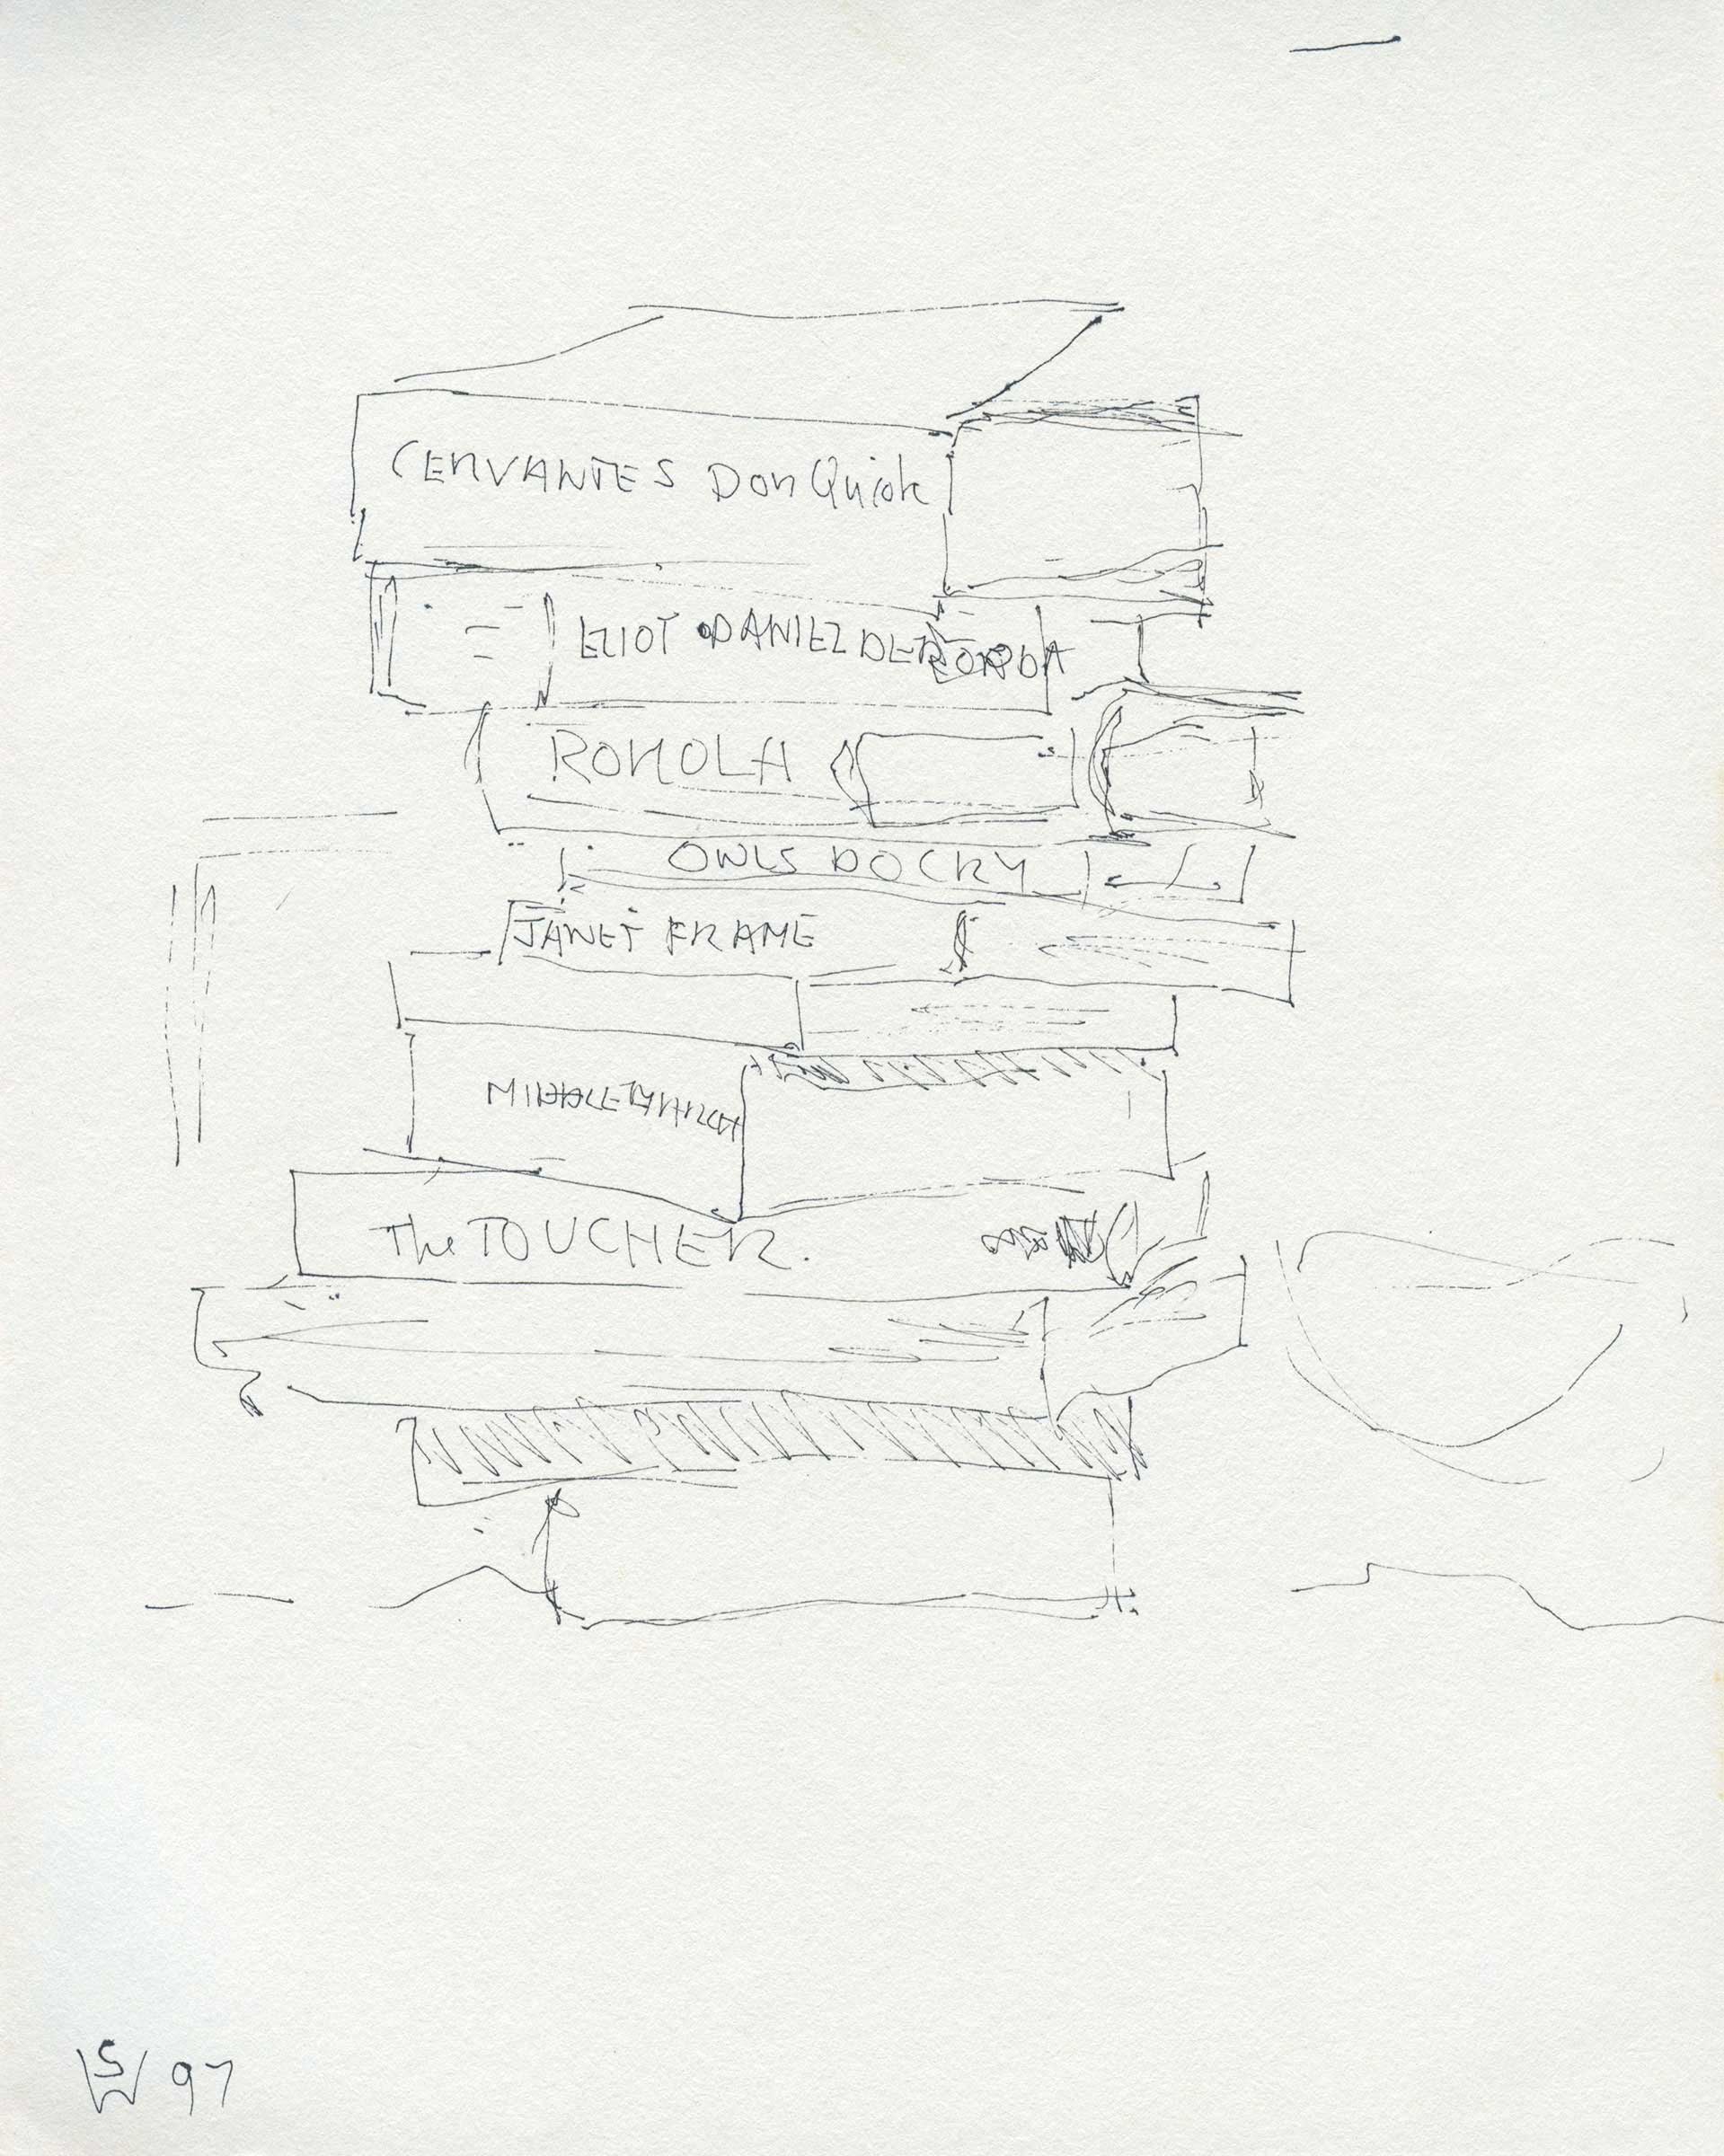 CERVANTES Don Quiote
ELIOT DANIEL DERONDA
ROMOLA
OWLS DO CRY
JANET FRAME
MIDDLEMARCH
The TOUCHER.
SW 97